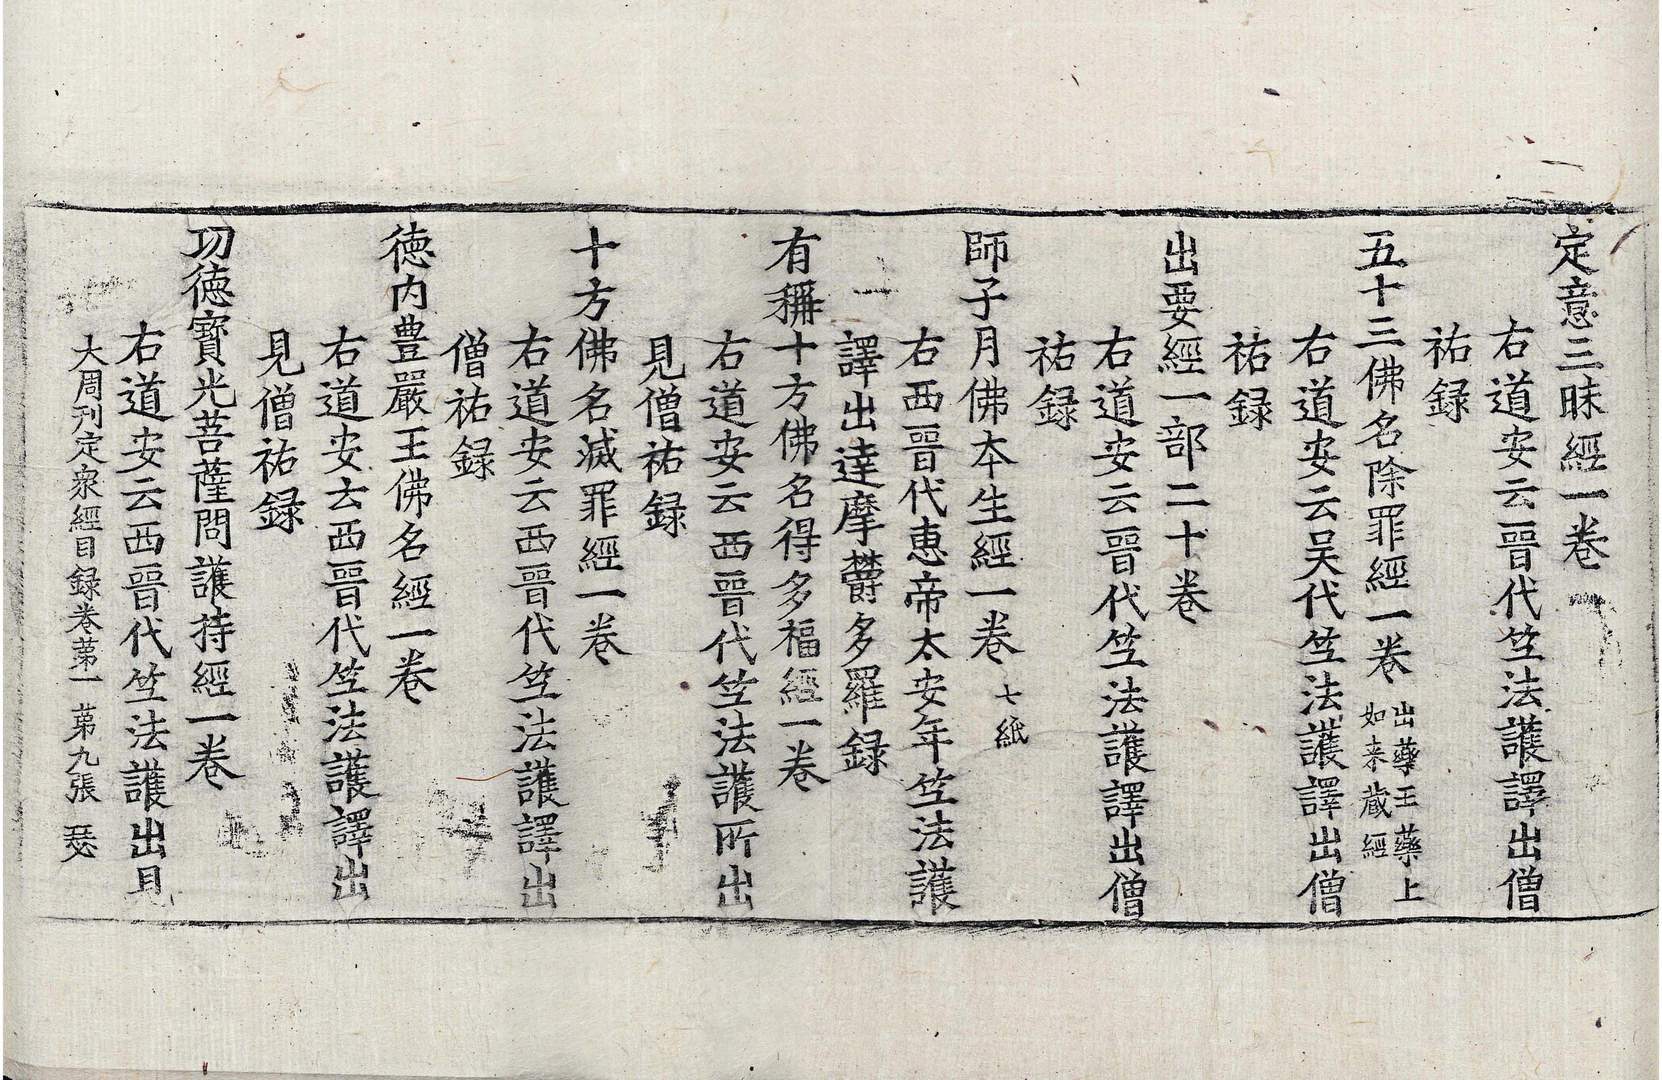 定意三昧經一卷
右道安云晉代竺法護譯出僧
祐録
五十三佛名除罪經一卷 出藥王藥上
如来蔵經
右道安云吴代竺法護譯出僧
祐録
出要經一部二十卷
右道安云晉代竺法護譯出僧
祐録
師子月佛本生經一卷 七紙
右西晉代惠帝太安年竺法護
譯出達摩欝多羅録
有稱十方佛名得多福經一卷
右道安云西晉代竺法護所出
見僧祐録
十方佛名滅罪經一卷
右道安云西晉代竺法護譯出
僧祐録
德内豊嚴王佛名經一卷
右道安云西晉代竺法護譯出
見僧祐録
功德寶光菩薩問護持經一卷
右道安云西晉代竺法護出見
大周刊定衆經目録卷苐一 苐九張 瑟